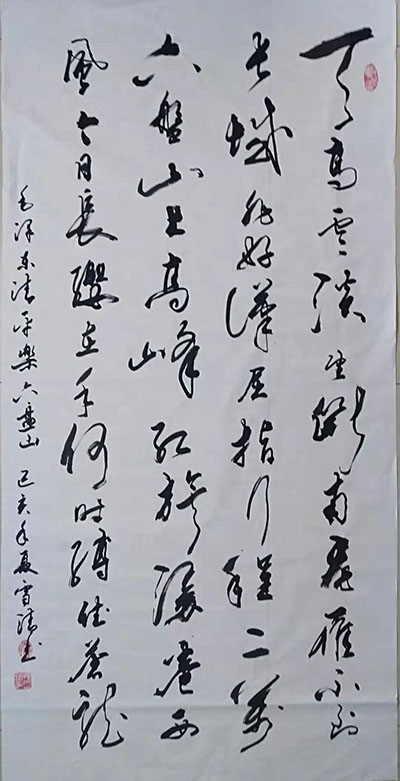 天高雲淡望斷南飛雁不到
長城非好漢屈指行程二萬
六盤山上高峰紅旗漫卷西
風今日長纓在手何時縛住蒼龍
毛澤東清平樂六盤山 己亥年夏雪清书